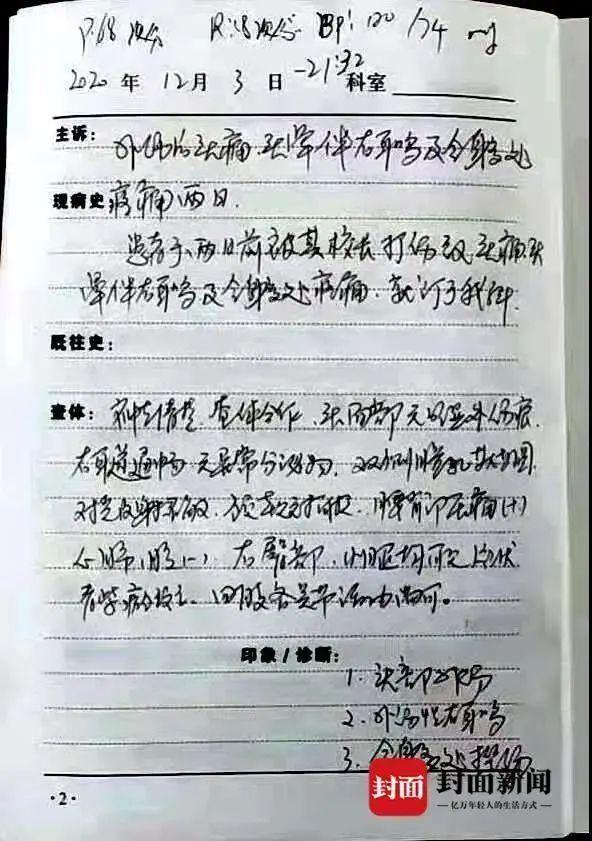 P:68次/分 R:18次/分 BP:120/74 mmHg
2020 年 12月 3 日 -21:32 科室
主诉: 外伤后头痛、头晕伴右耳鸣及全身多处
现病史: 疼痛两日.
患者于两日前被其校长打伤致头痛头
晕伴右耳鸣及全身多处疼痛.就诊于我科.
既往史:
查体: 神志清楚.查体合作.头面部无明显外伤痕.
右耳道通畅 无异常分泌物.双侧瞳孔等大等圆.
对光反射灵敏.颈软无抵抗.腰背部压痛(+)
心肺腹(-) 右臀部、
青紫.四肢各关节活动尚可。
印象/诊断:
1. 头部外伤
2. 外伤性右耳鸣
3. 全身多处挫伤
·2·
封面 封面新闻
亿万年轻人的生活方式